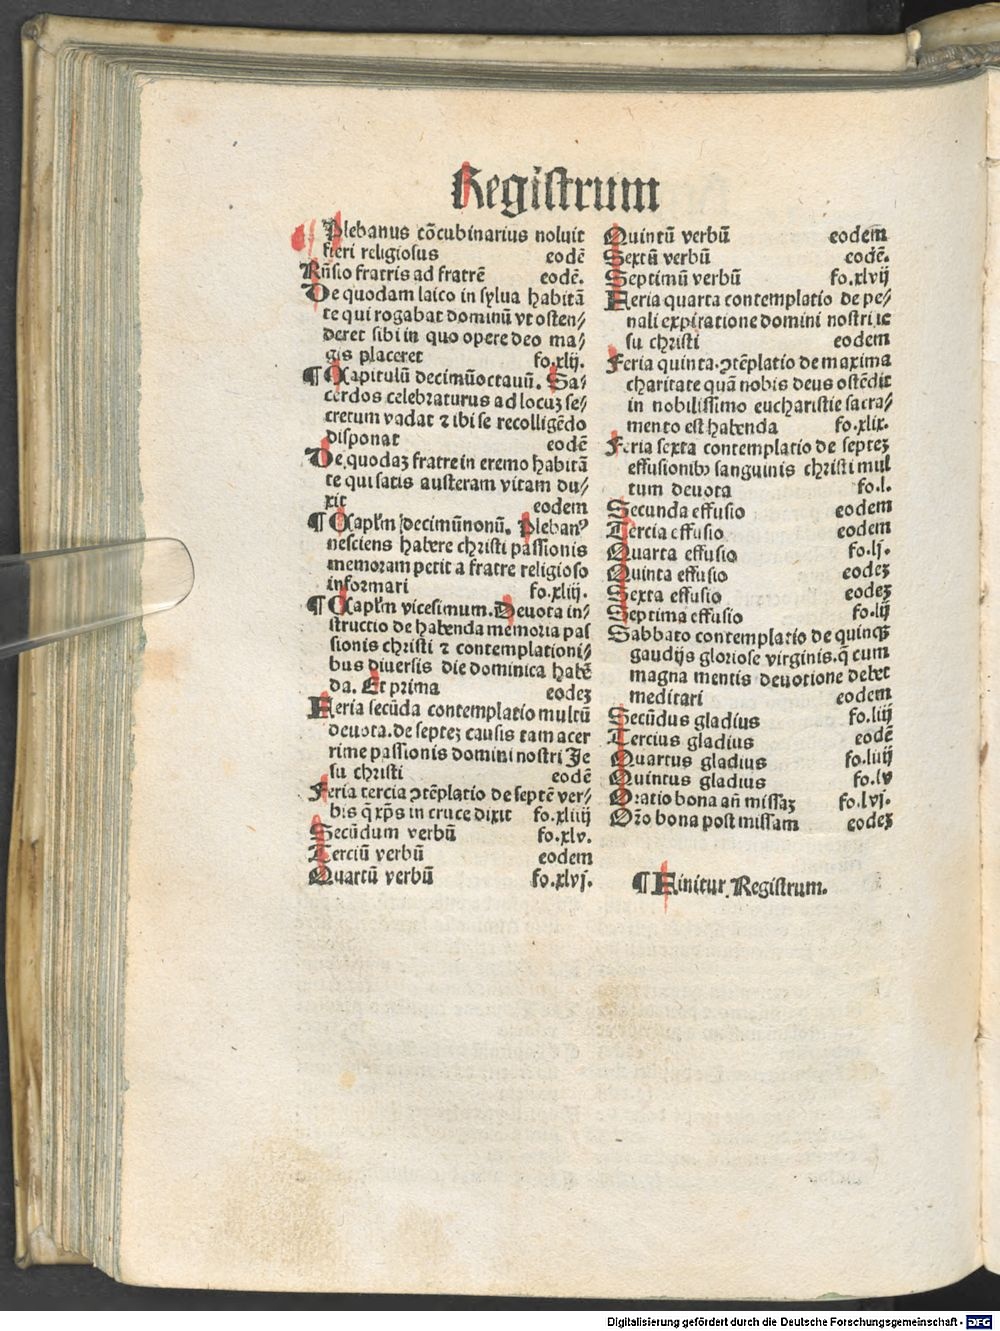 Registrum
Plebanus cōcubinarius noluit
fieri religiosus eodē
Rñsio fratris ad fratrē eodē.
De quodam laico in sylua habitā
te qui rogabat dominū vt osten⸗
deret sibi in quo opere deo ma⸗
gis placeret fo.xlij.
¶ Capitulū decimūoctauū. Sa⸗
cerdos celebraturus ad locuꝫ se⸗
cretum vadat ⁊ ibi se recolligēdo
disponat eodē
De quodaꝫ fratre in eremo habitā
te qui satis austeram vitam du⸗
xit eodem
¶ Caplm decimūnonū. Pleban⁹
nesciens habere christi passionis
memoram petit a fratre religioso
informari fo.xliij.
¶ Caplm vicesimum. Deuota in⸗
structio de habenda memoria pas
sionis christi ⁊ contemplationi⸗
bus diuersis die dominica habē
da. Et prima eodeꝫ
Feria secūda contemplatio multū
deuota. de septeꝫ causis tam acer
rime passionis domini nostri Je
su christi eodē
Feria tercia ꝯtēplatio de septē ver⸗
bis q̄ xp̄s in cruce dixit fo.xliiij
Secūdum verbū fo.xlv.
Terciū verbū eodem
Quartū verbū fo.xlvj.
Quintū verbū eodem
Sextū verbū eodē.
Septimū verbū fo.xlvij
Feria quarta contemplatio de pe⸗
nali expiratione domini nostri ie
su christi eodem
Feria quinta. ꝯtēplatio de maxima
charitate quā nobis deus ostēdit
in nobilissimo eucharistie sacra⸗
mento est habenda fo.xlix.
Feria sexta contemplatio de septeꝫ
effusionibꝰ sanguinis christi mul
tum deuota fo.l.
Secunda effusio eodem
Tercia effusio eodem
Quarta effusio fo.lj.
Quinta effusio eodeꝫ
Sexta effusio eodeꝫ
Septima effusio fo.lij
Sabbato contemplatio de quinqꝫ
gaudijs gloriose virginis. q̄ cum
magna mentis deuotione debet
meditari eodem
Secūdus gladius fo.liij
Tercius gladius eodē
Quartus gladius fo.liiij
Quintus gladius fo.lv
Oratio bona añ missaꝫ fo.lvj.
Orõ bona post missam eodeꝫ
¶ Finitur Registrum.
Digitalisierung gefördert durch die Deutsche Forschungsgemeinschaft - DFG